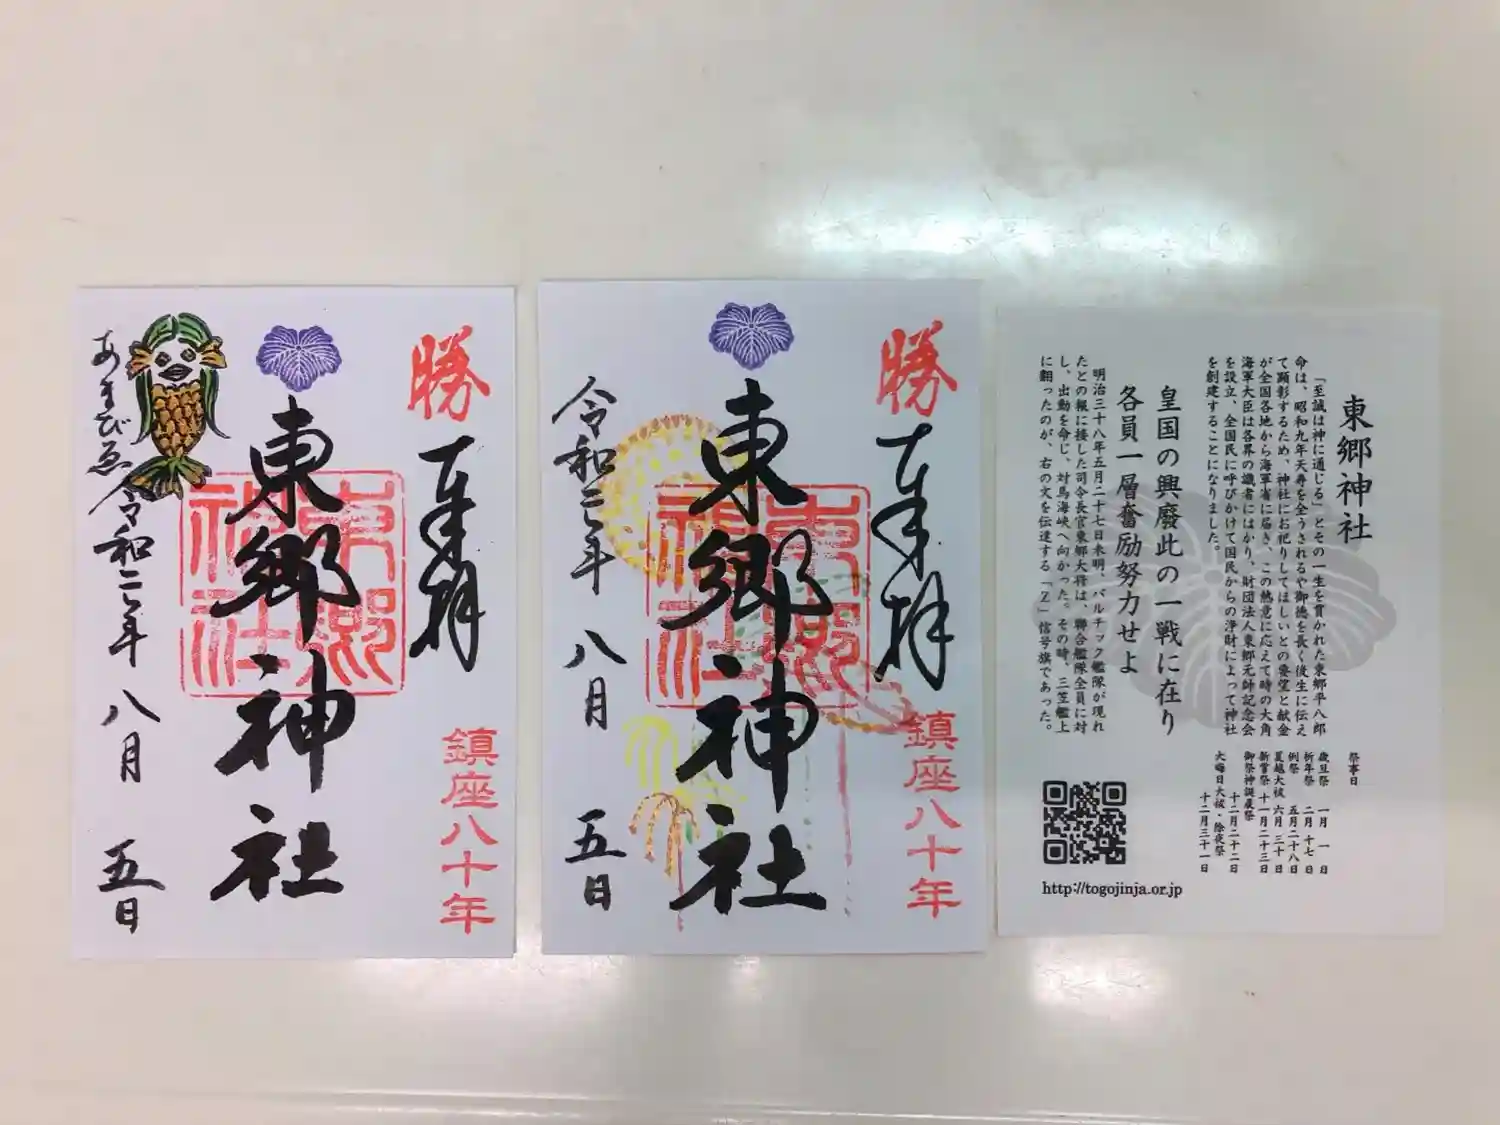 勝
奉拝
鎮座八十年
東郷神社
東郷神社
あまびゑ
令和二年 八月 五日
勝
奉拝
鎮座八十年
東郷神社
東郷神社
令和二年 八月 五日
東郷神社
「至誠は神に通じる」とその一生を貫かれた東郷平八郎
命は、昭和九年天寿を全うされるや御徳を長く後生に伝え
て顕彰するため、神社にお祀りしてほしいとの要望と献金
が全国各地から海軍省に届き、この熱意に応えて時の大角
海軍大臣は各界の識者にはかり、財団法人東郷元帥記念会
を設立、全国民に呼びかけて国民からの浄財によって神社
を創建することになりました。
皇国の興廢此の一戦に在り
各員一層奮励努力せよ
明治三十八年五月二十七日未明、バルチック艦隊が現れ
たとの報に接した司令長官東郷大将は、聯合艦隊全員に対
し、出動を命じ、対馬海峡へ向かった。その時、三笠艦上
に翻ったのが、右の文を伝達する「Z」信号旗であった。
祭事日
歳旦祭 一月 一日
祈年祭 二月 十七日
例祭 五月二十八日
夏越大祓 六月 三十日
新嘗祭 十一月二十三日
御祭神誕辰祭 十二月二十二日
大晦日大祓・除夜祭
十二月三十一日
http://togojinja.or.jp